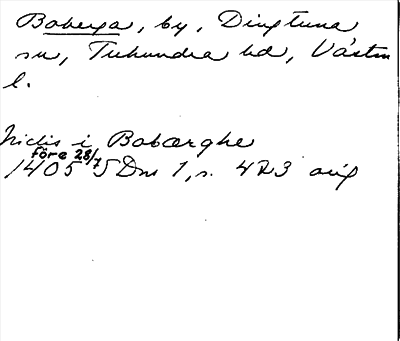 Boberga, by, Dingtuna
sn, Tuhundra hd, Västm
l.
Niclis i Bobærghe
före 28/7
1405 SDns 1, s. 423 orig